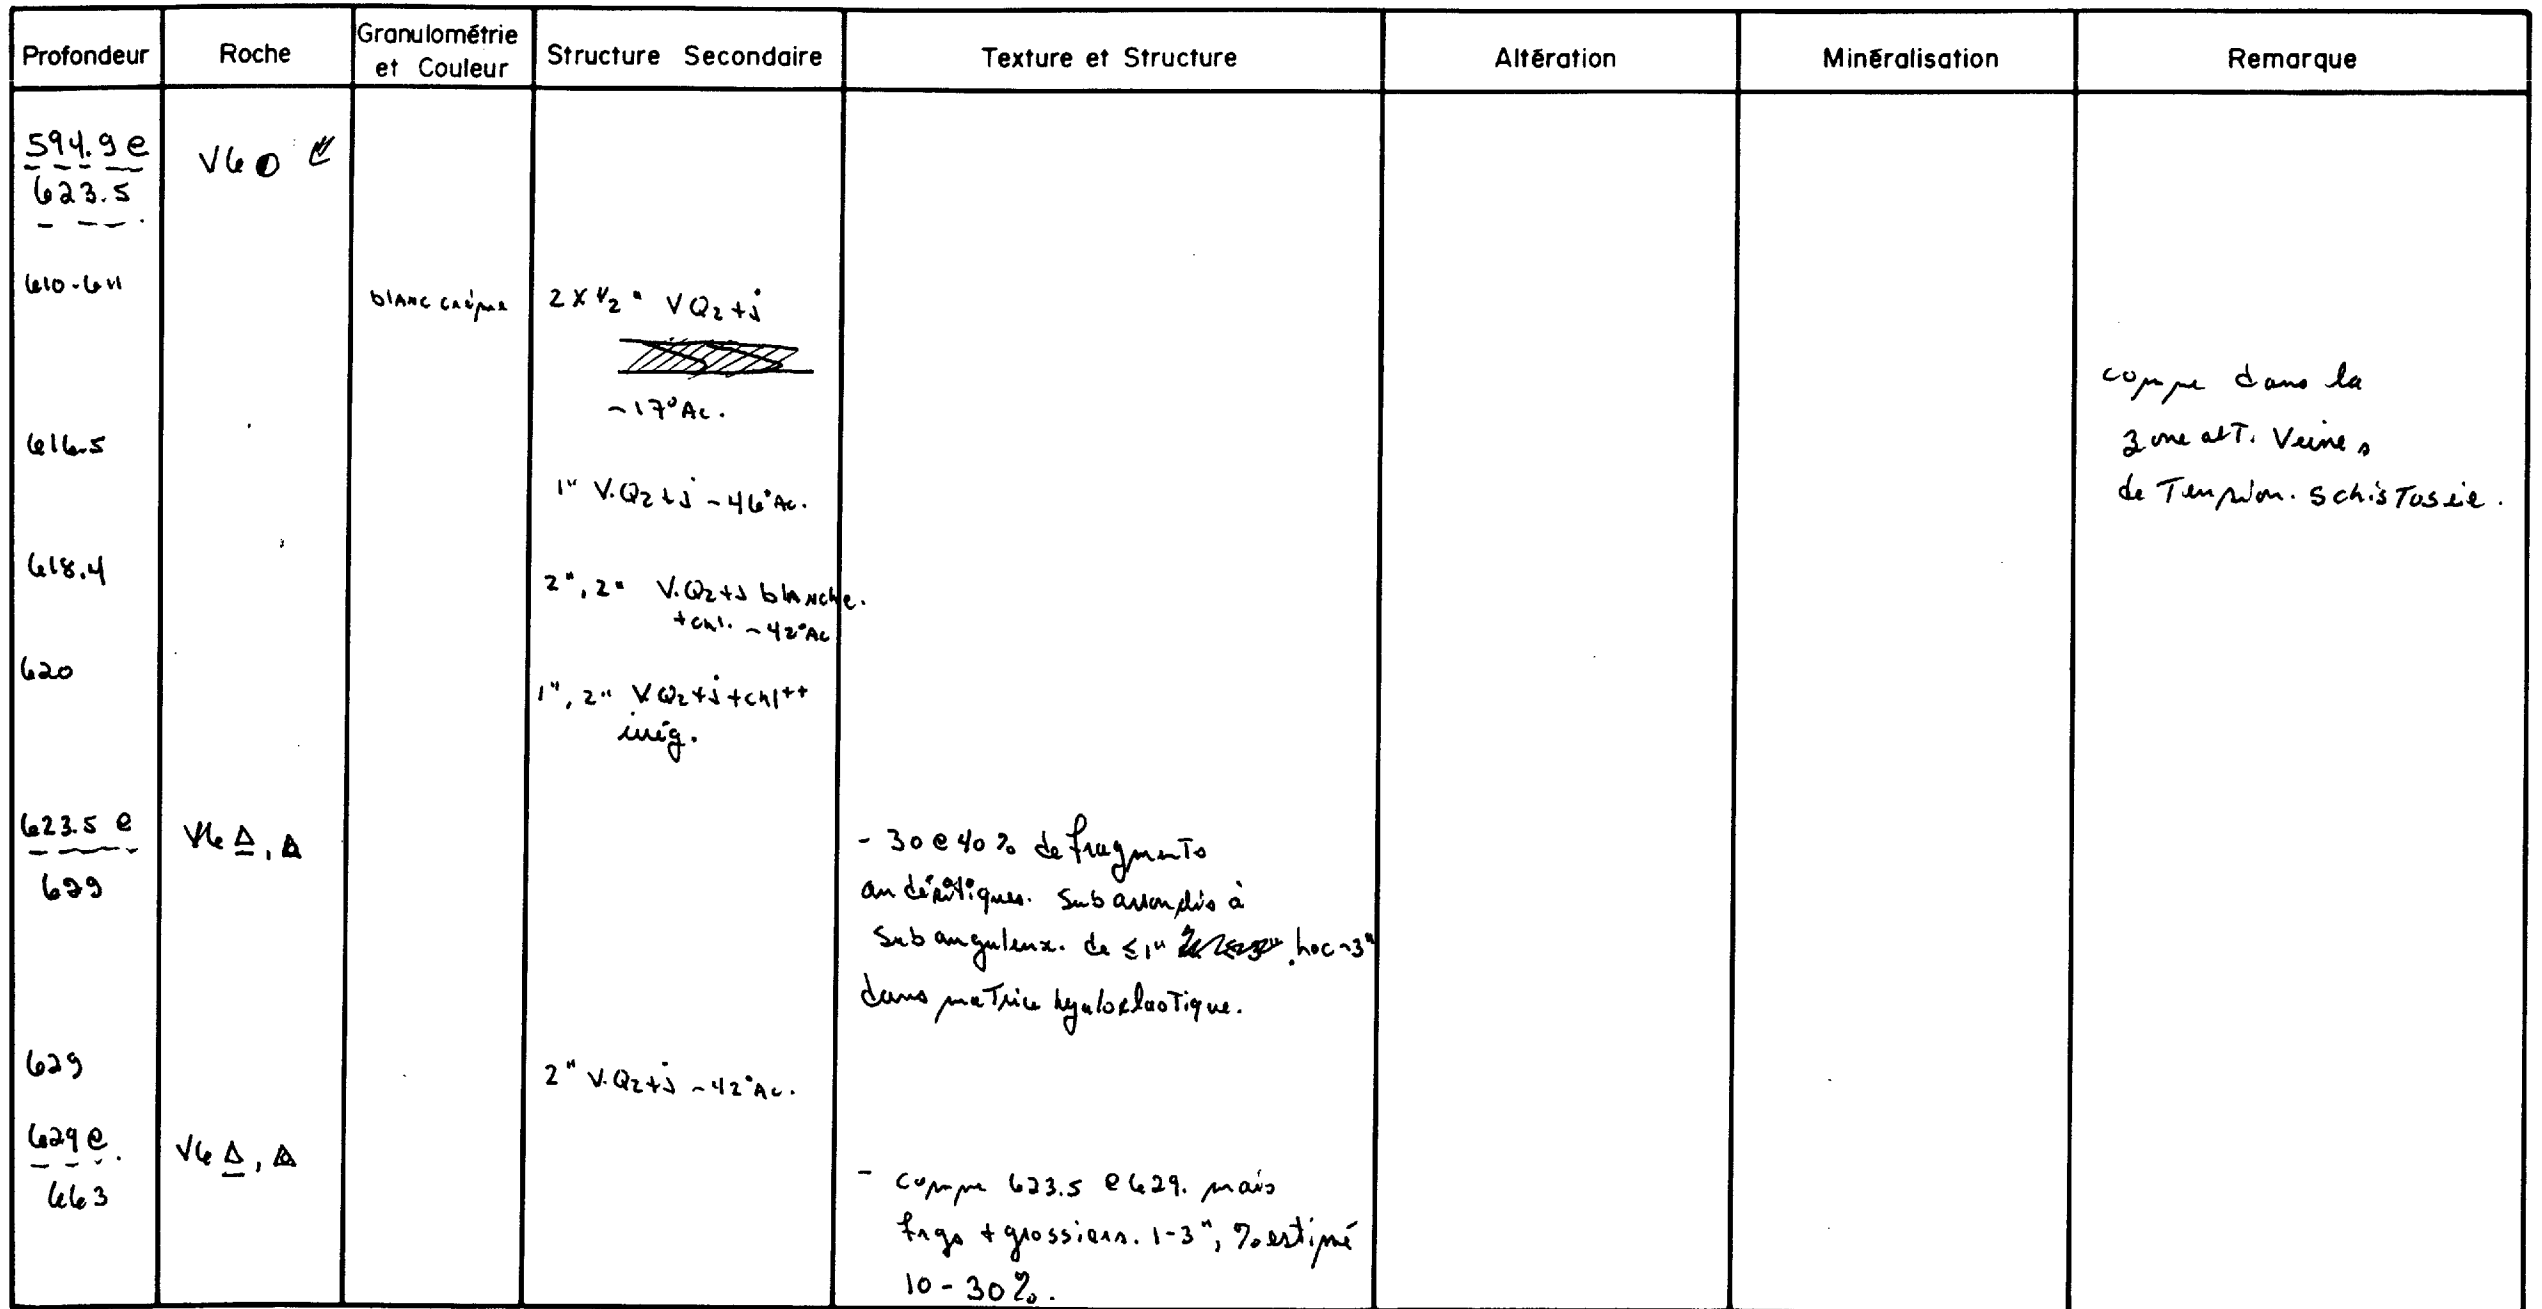 Profondeur Roche Granulométrie et Couleur Structure Secondaire Texture et Structure Altération Minéralisation Remarque
594.9 @ V6
623.5
610-611 blanc crème 2 x 1/2" VQz+j
~17°Ac.
comme dans la
616.5 zone alt. Veines
1" V.Qz+j ~46°Ac. de Tension. schistosée.
618.4 2", 2" V.Qz+j blanche.
+chl. ~42°Ac
620 1", 2" V.Qz+j+chl++
irrég.
623.5 @ V6 Δ, Δ - 30 @ 40% de fragments
629 andésitiques. Subarrondis à
subanguleux. de ≤1" . loc ~3"
dans matrice hyaloclastique.
629 2" V.Qz+j ~42°Ac.
629 @ V6 Δ, Δ
663 - comme 623.5 @ 629. mais
frgs + grossiers. 1-3", % estimé
10-30%.